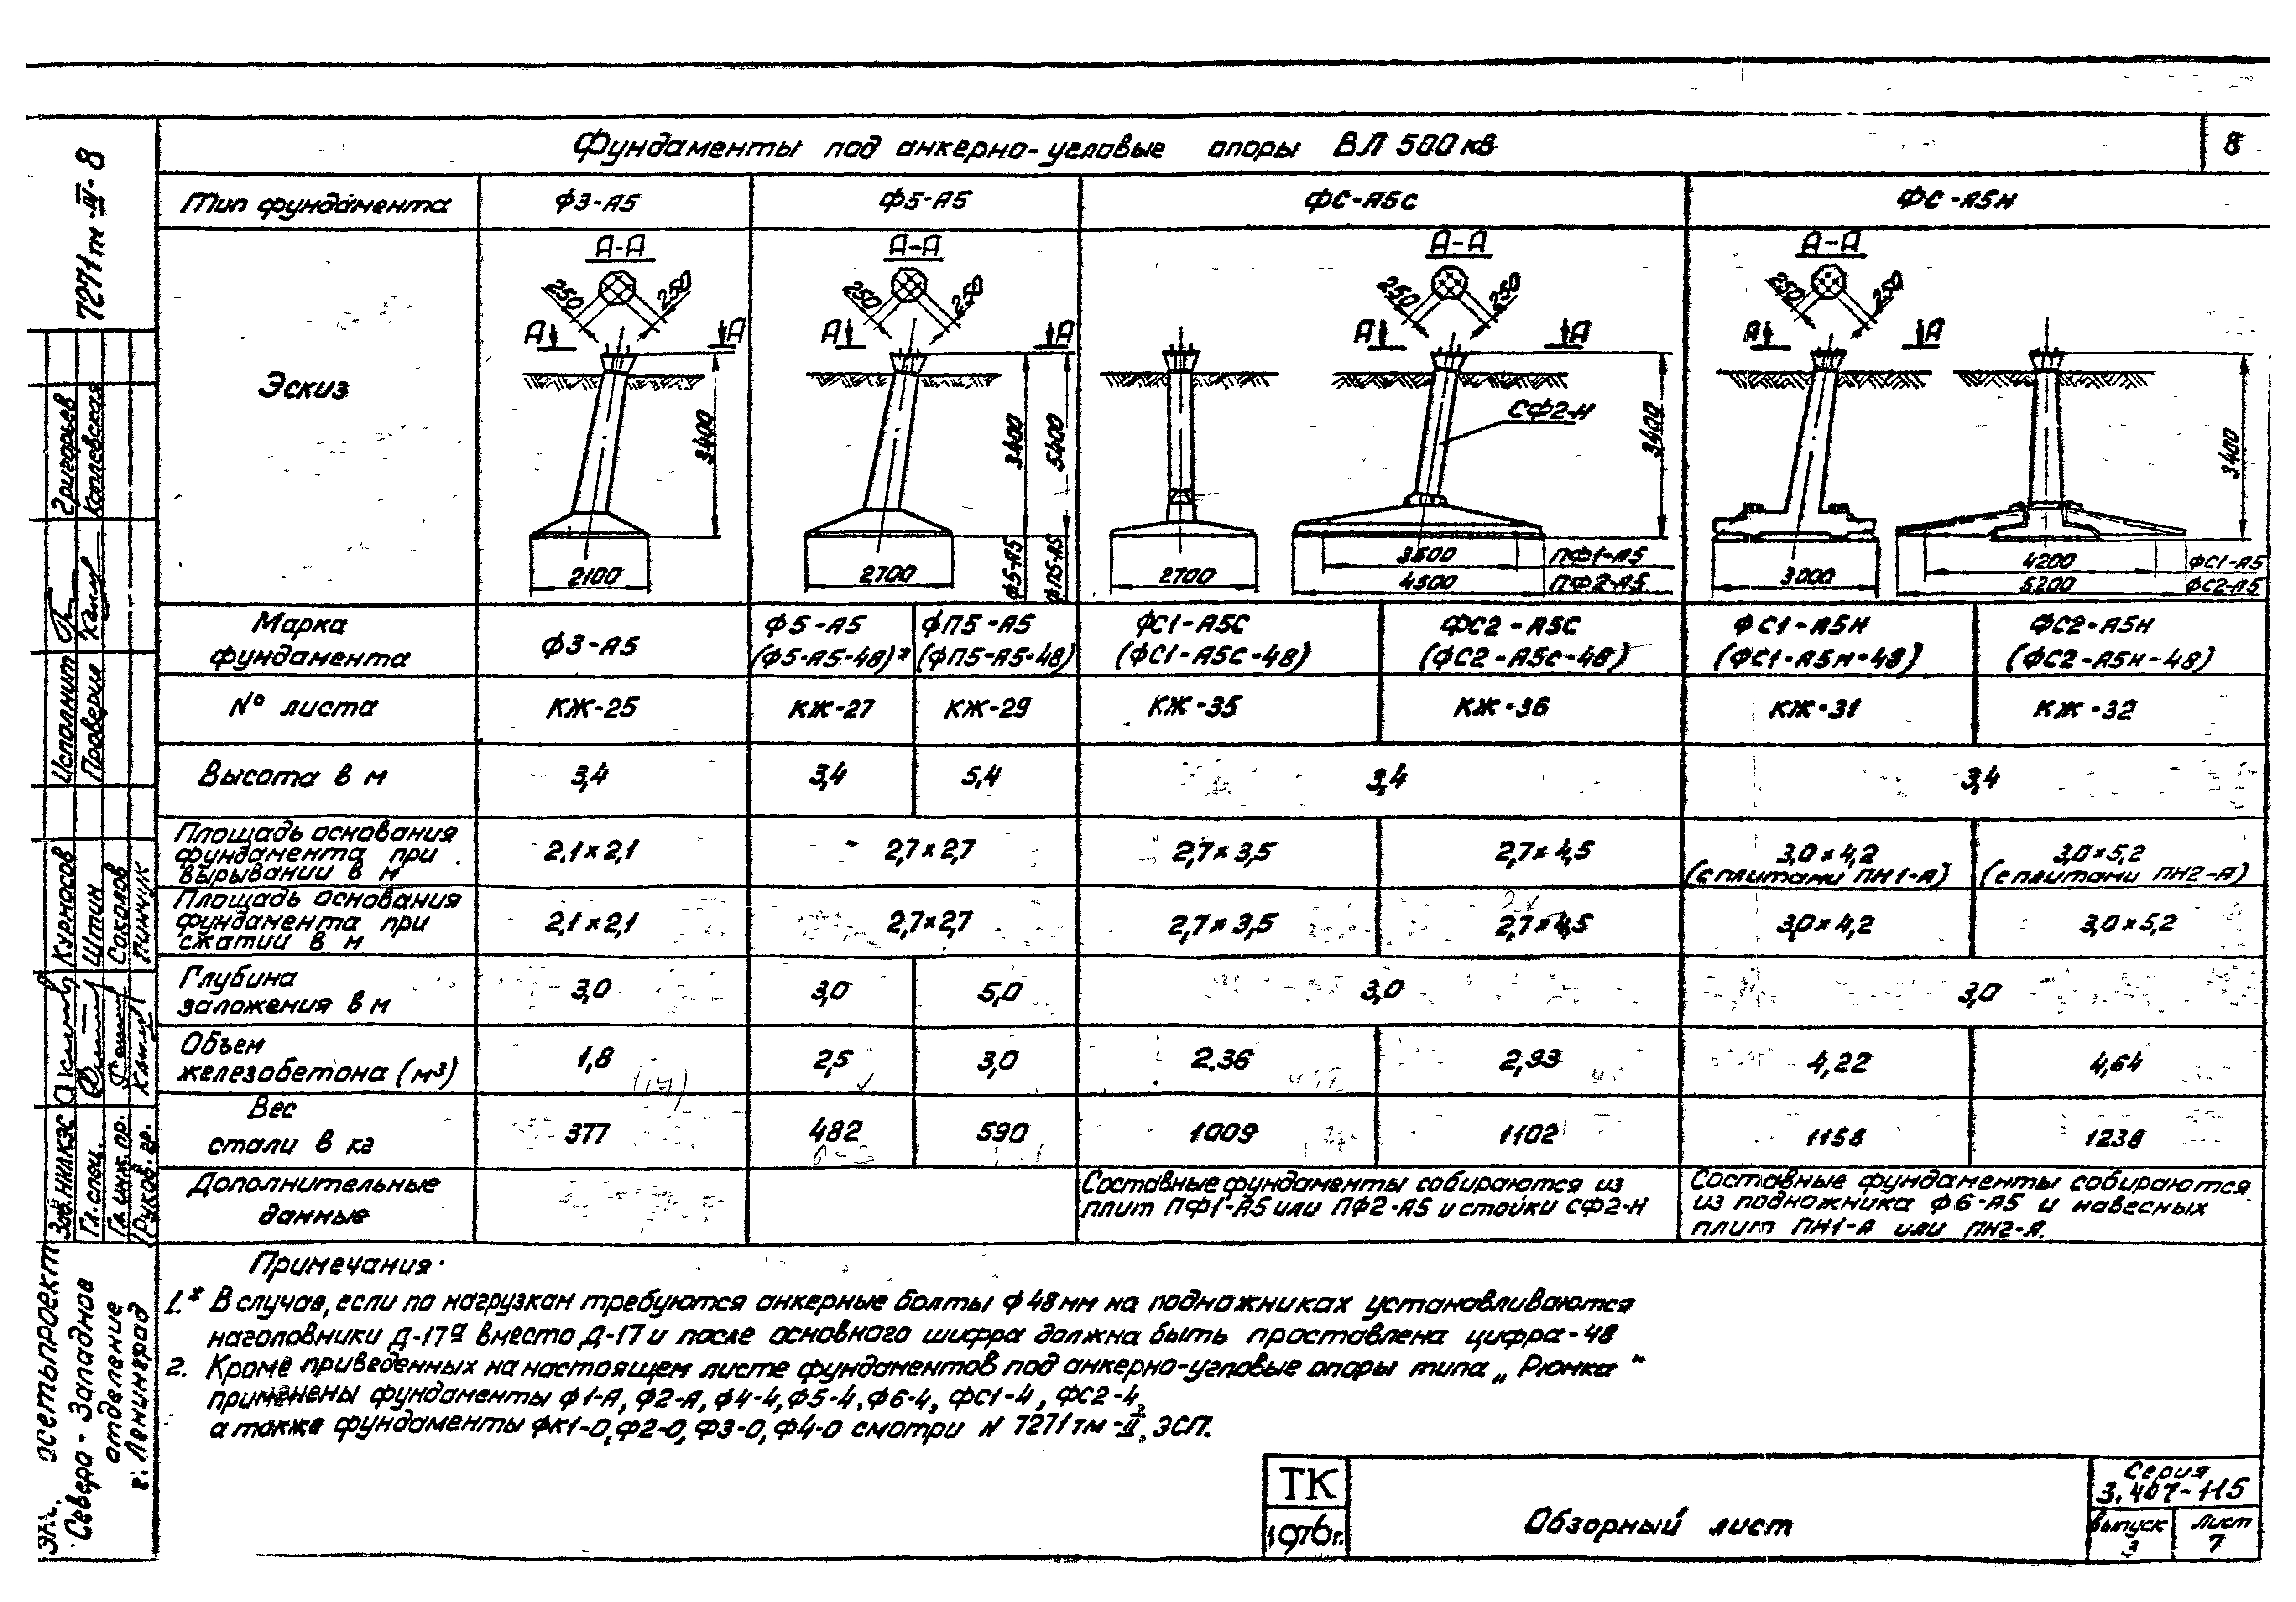 Фундаменты под анкерно-угловые опоры ВЛ 500 кв
8
7271тм-III-8
Тип фундамента
Ф3-А5
Ф5-А5
ФС-А5С
ФС-А5Н
Эскиз
А-А
250
250
А
А
3400
2100
А-А
250
250
А
А
3400
5400
Ф5-А5
ФП5-А5
2700
А-А
250
250
А
А
СФ2-Н
3400
2700
3500
ПФ1-А5
4500
ПФ2-А5
А-А
250
250
А
А
3400
3000
4200
ФС1-А5
5200
ФС2-А5
Марка
фундамента
Ф3-А5
Ф5-А5
(Ф5-А5-48)*
ФП5-А5
(ФП5-А5-48)
ФС1-А5С
(ФС1-А5С-48)
ФС2-А5С
(ФС2-А5С-48)
ФС1-А5Н
(ФС1-А5Н-48)
ФС2-А5Н
(ФС2-А5Н-48)
№ листа
КЖ-25
КЖ-27
КЖ-29
КЖ-35
КЖ-36
КЖ-31
КЖ-32
Высота в м
3,4
3,4
5,4
3,4
3,4
Площадь основания
фундамента при
вырывании в м
2,1×2,1
2,7×2,7
2,7×3,5
2,7×4,5
3,0×4,2
(с плитами ПН1-А)
3,0×5,2
(с плитами ПН2-А)
Площадь основания
фундамента при
сжатии в м
2,1×2,1
2,7×2,7
2,7×3,5
2,7×4,5
3,0×4,2
3,0×5,2
Глубина
заложения в м
3,0
3,0
5,0
3,0
3,0
Объем
железобетона (м³)
1,8
2,5
3,0
2.36
2,93
4,22
4,64
Вес
стали в кг
377
482
590
1009
1102
1158
1238
Дополнительные
данные
Составные фундаменты собираются из
плит ПФ1-А5 или ПФ2-А5 и стойки СФ2-Н
Составные фундаменты собираются
из подножника Ф6-А5 и навесных
плит ПН1-А или ПН2-А.
Примечания·
1.* В случае, если по нагрузкам требуются анкерные болты ф 48мм на подножниках устанавливаются
наголовники Д-17а вместо Д-17 и после основного шифра должна быть проставлена цифра-48
2. Кроме приведенных на настоящем листе фундаментов под анкерно-угловые опоры типа „Рюмка"
применены фундаменты Ф1-А, Ф2-А, Ф4-4, Ф5-4, Ф6-4, ФС1-4, ФС2-4,
а также фундаменты ФК1-0, Ф2-0, Ф3-0, Ф4-0 смотри N 7271тм-II, ЭСП.
ТК
1976г.
Обзорный лист
Серия
3.407-115
Выпуск
3
Лист
7
Исполнит
Григорьев
Проверил
Зав.НИЛКЭС
Курносов
Гл.спец.
Штин
Гл.инж.пр.
Соколов
Руков.гр.
Пинчук
Северо-Западное
отделение
г. Ленинград